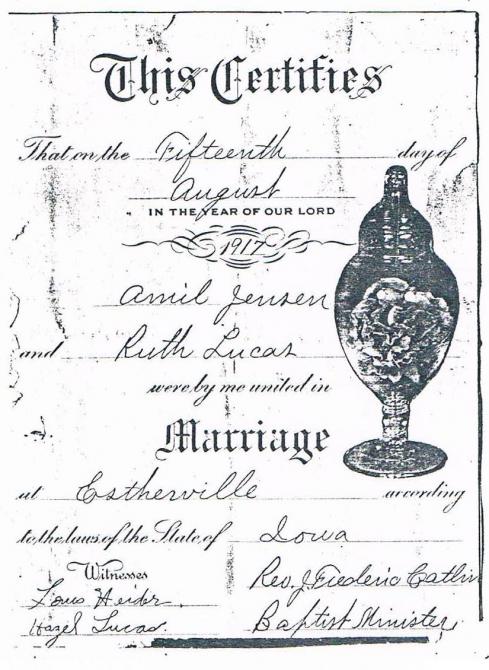 This Certifies
That on the Fifteenth day of
August
IN THE YEAR OF OUR LORD
1917
Amil Jensen
and Ruth Lucas
were by me united in
Marriage
at Estherville according
to the laws of the State of Iowa
Witnesses
Louis Heider.
Hazel Lucas.
Rev. J. Frederic Catlin
Baptist Minister